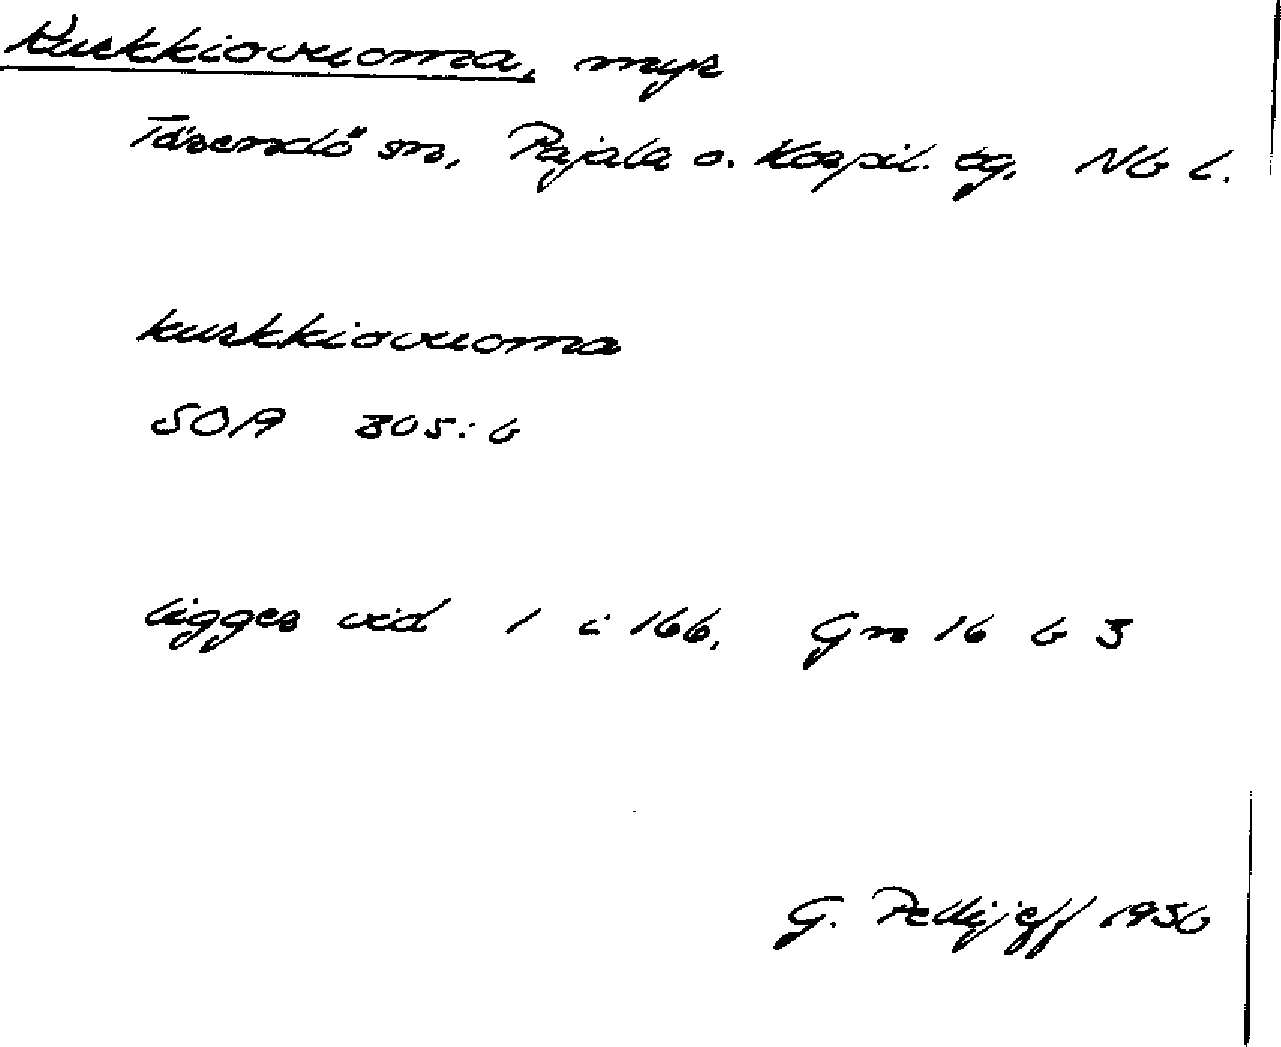 Kurkkiovuoma, myr
Tärendö sn, Pajala o. Korpil. tg, Nb l.
kurkkiovuoma
SOA 305:6
ligger vid 1 i 166, Gn 16 b 3
G. Pellijeff 1956